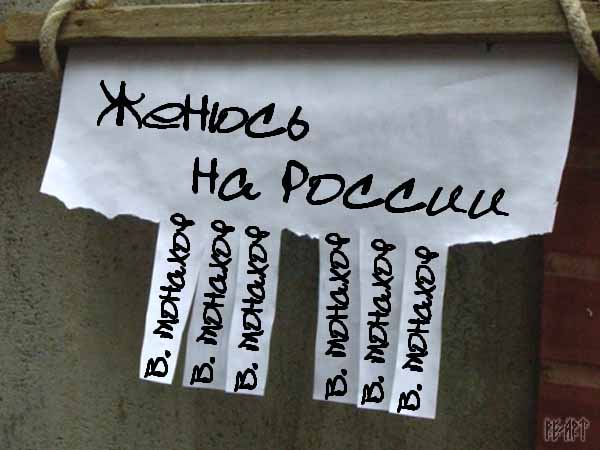 Женюсь
на России
В. монахоф
В. монахоф
В. монахоф
В. монахоф
В. монахоф
В. монахоф